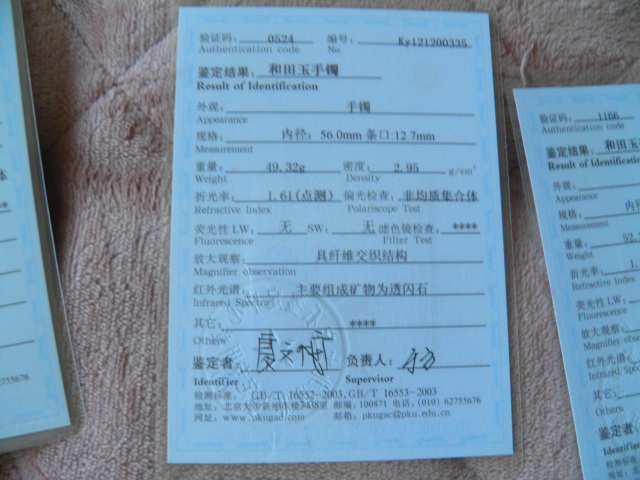 验证码: 0524 编号: Ky121200335
Authentication code No.
鉴定结果: 和田玉手镯
Result of Identification
外观: 手镯
Appearance
规格: 内径: 56.0mm 条口:12.7mm
Measurement
重量: 49.32g 密度: 2.95 g/cm³
Weight Density
折光率: 1.61(点测) 偏光检查: 非均质集合体
Refractive Index Polariscope Test
荧光性 LW: 无 SW: 无 滤色镜检查: ****
Fluorescence Filter Test
放大观察: 具纤维交织结构
Magnifier observation
红外光谱: 主要组成矿物为透闪石
Infrared Spectra
其它: ****
Others
鉴定者: 负责人:
Identifier Supervisor
检测标准: GB/T 16552-2003,GB/T 16553-2003
地址: 北京大学新地学楼3408室 邮编: 100871 电话: (010) 62755676
网址: www.pkugac.com 邮箱: pkugac@pku.edu.cn
验证码: 1166
Authentication code
鉴定结果: 和田玉
Result of Identification
外观:
Appearance
规格: 内径
Measurement
重量: 52.
Weight
折光率: 1.
Refractive Index
荧光性 LW:
Fluorescence
放大观察:
Magnifier obser
红外光谱:
Infrared Spec
其它:
Others
鉴定者
Identifie
检测标准
地址:
网址:
62755676